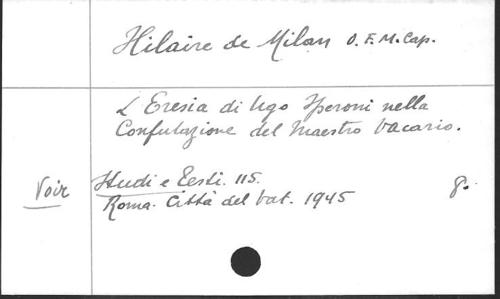 Hilaire de Milan O.F.M.Cap.
L'Eresia di Ugo Speroni nella
Confutazione del Maestro Vacario.
Voir Studi e Testi. 115.
Roma. Città del Vat. 1945 8°